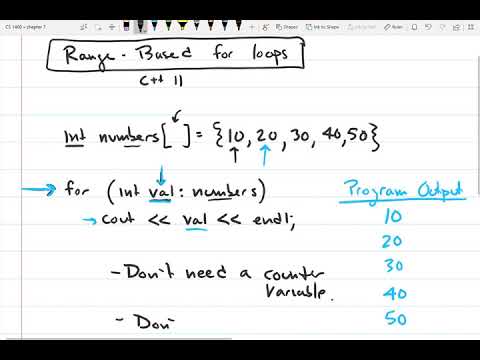 CS 1400 – chapter 7
Range-Based for loops
C++ 11
Int numbers[ ] = {10, 20, 30, 40, 50}
for (int val: numbers)
cout << val << endl;
Program Output
10
20
30
40
50
-Don't need a counter
variable.
- Don